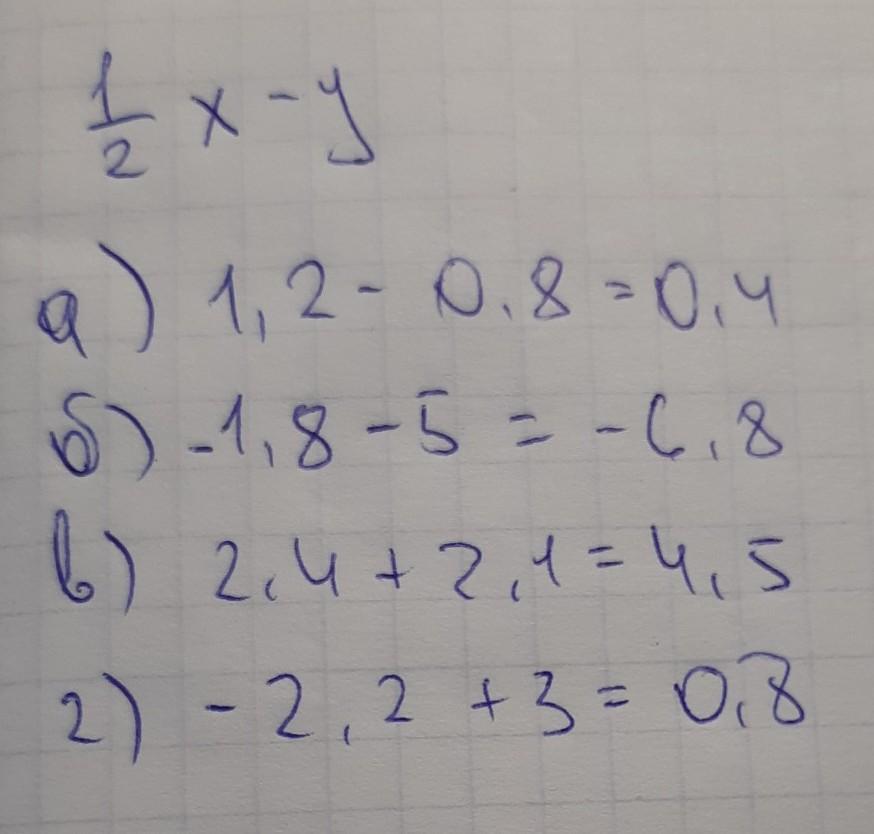 1/2 x - y
а) 1,2 - 0,8 = 0,4
б) -1,8 - 5 = -6,8
в) 2,4 + 2,1 = 4,5
г) -2,2 + 3 = 0,8